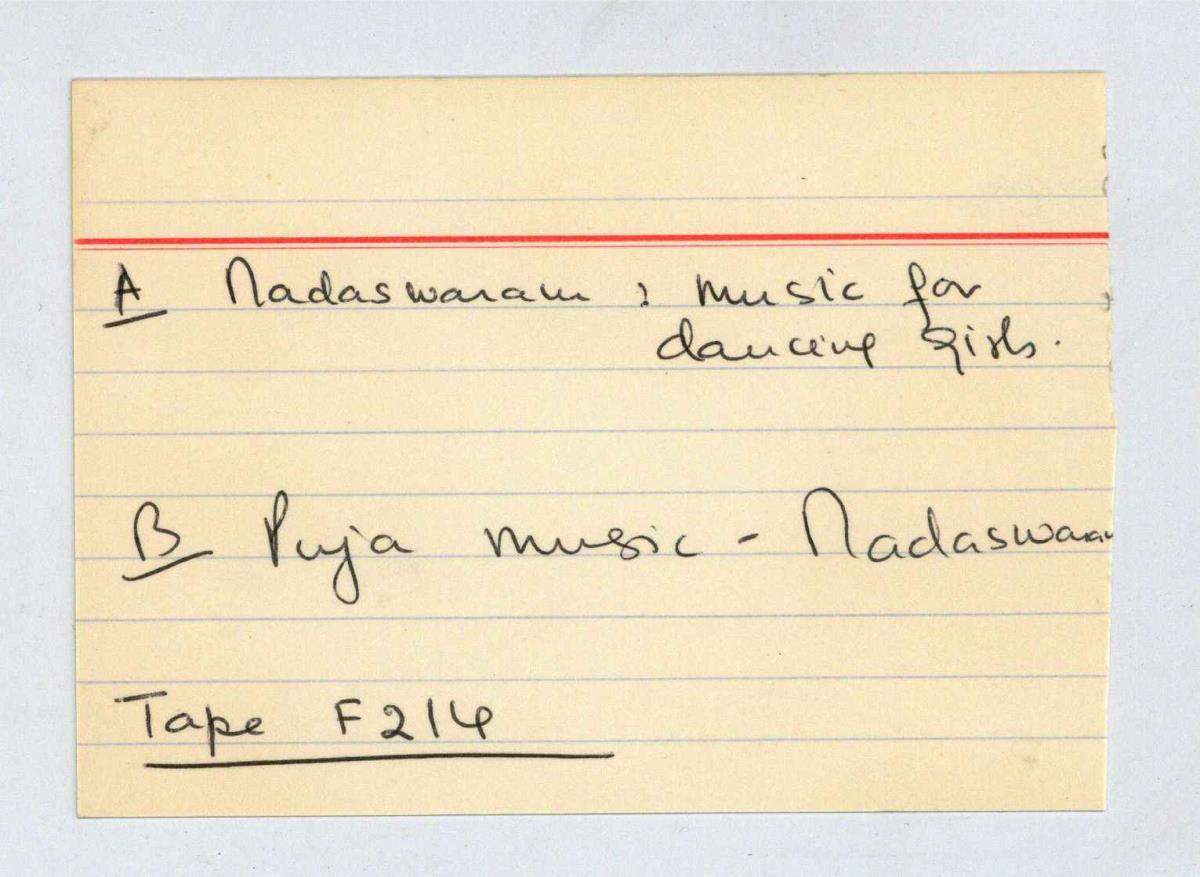 A Nadaswaram : music for
dancing girls.
B Puja music - Nadaswaram
Tape F214